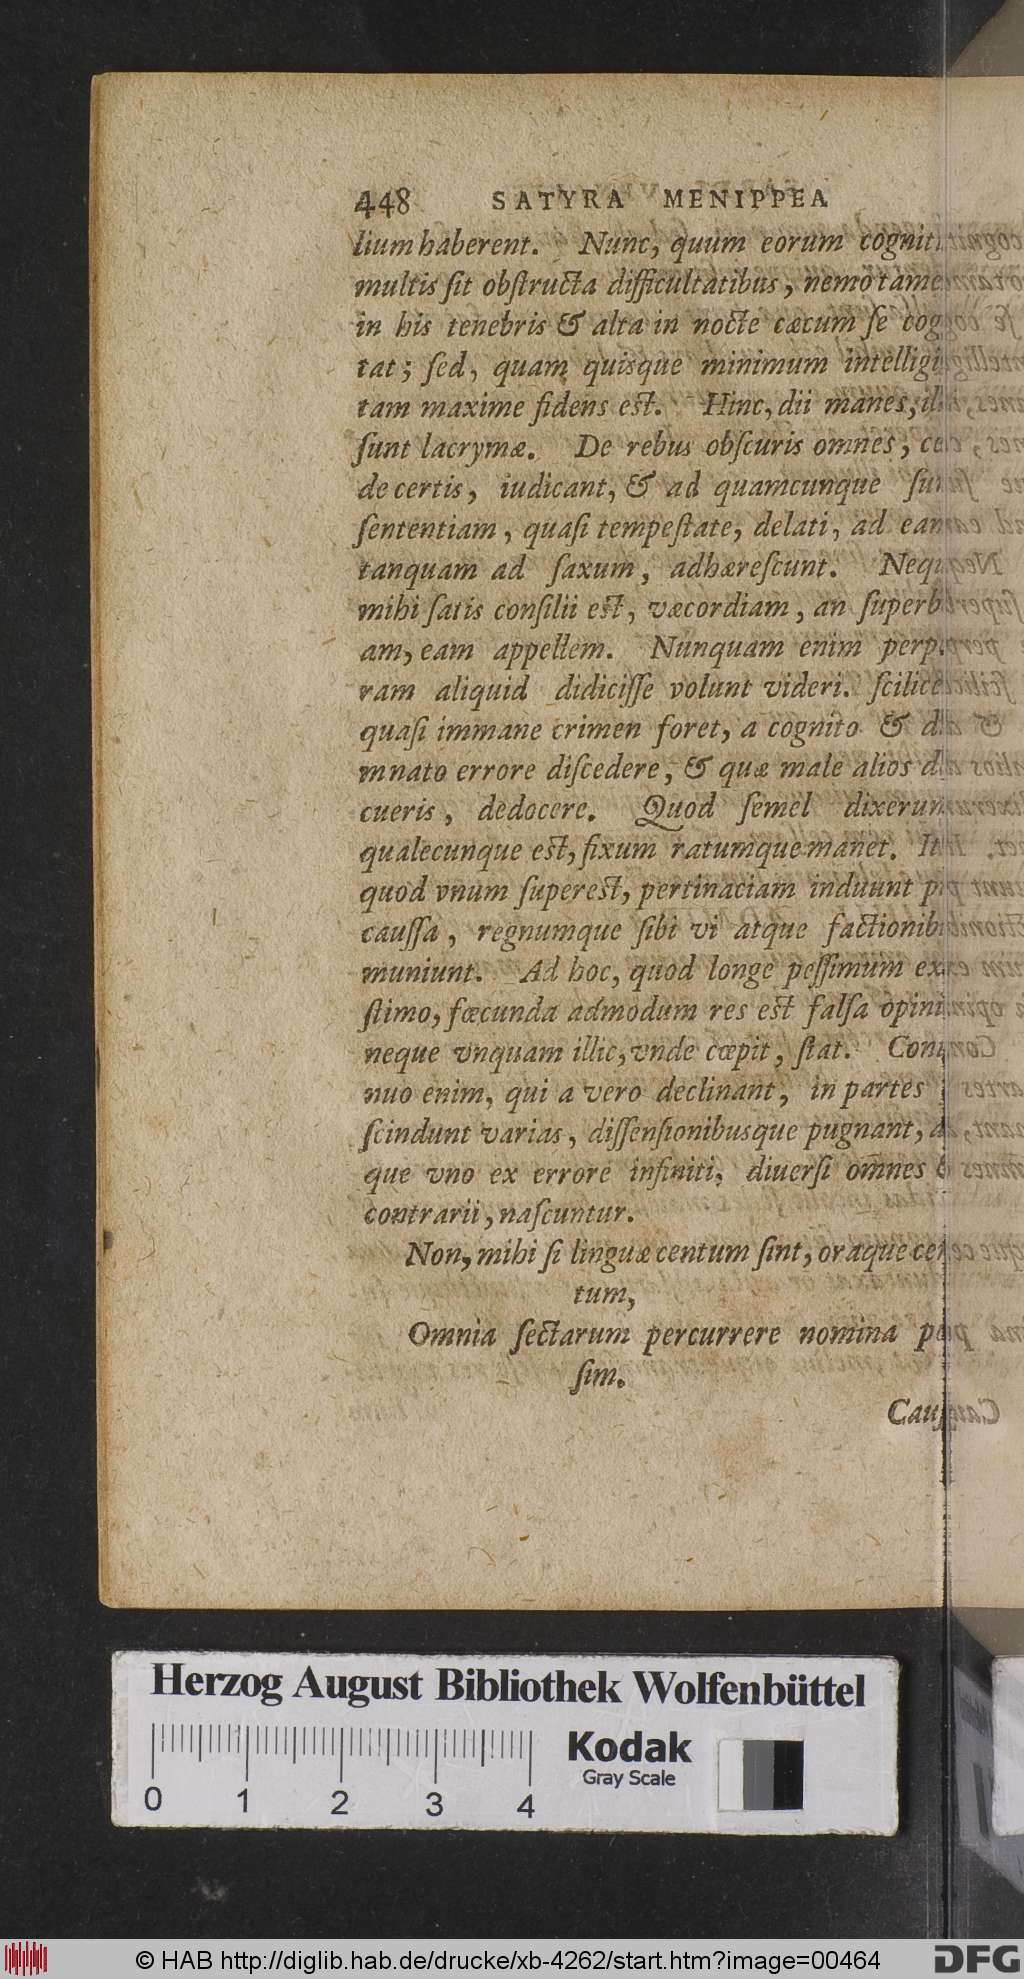 448 SATYRA MENIPPEA
lium haberent. Nunc, quum eorum cogniti
multis sit obstructa difficultatibus, nemo tame
in his tenebris & alta in nocte cæcum se cog
tat; sed, quam quisque minimum intelligi
tam maxime fidens est. Hinc, dii manes, ill
sunt lacrymæ. De rebus obscuris omnes, ce
de certis, iudicant, & ad quamcunque sun
sententiam, quasi tempestate, delati, ad eam
tanquam ad saxum, adhærescunt. Nequ
mihi satis consilii est, væcordiam, an superbi
am, eam appellem. Nunquam enim perp
ram aliquid didicisse volunt videri. scilice
quasi immane crimen foret, a cognito & da
mnato errore discedere, & quæ male alios di
cueris, dedocere. Quod semel dixerun
qualecunque est, fixum ratumque manet. It
quod vnum superest, pertinaciam induunt pr
caussa, regnumque sibi vi atque factionib
muniunt. Ad hoc, quod longe pessimum exi
stimo, fœcunda admodum res est falsa opini
neque vnquam illic, vnde cœpit, stat. Conti
nuo enim, qui a vero declinant, in partes
scindunt varias, dissensionibusque pugnant, d
que vno ex errore infiniti, diuersi omnes &
contrarii, nascuntur.
Non, mihi si linguæ centum sint, oraque cen
tum,
Omnia sectarum percurrere nomina pos
sim.
Caus
Herzog August Bibliothek Wolfenbüttel
Kodak
Gray Scale
0 1 2 3 4
© HAB http://diglib.hab.de/drucke/xb-4262/start.htm?image=00464
DFG